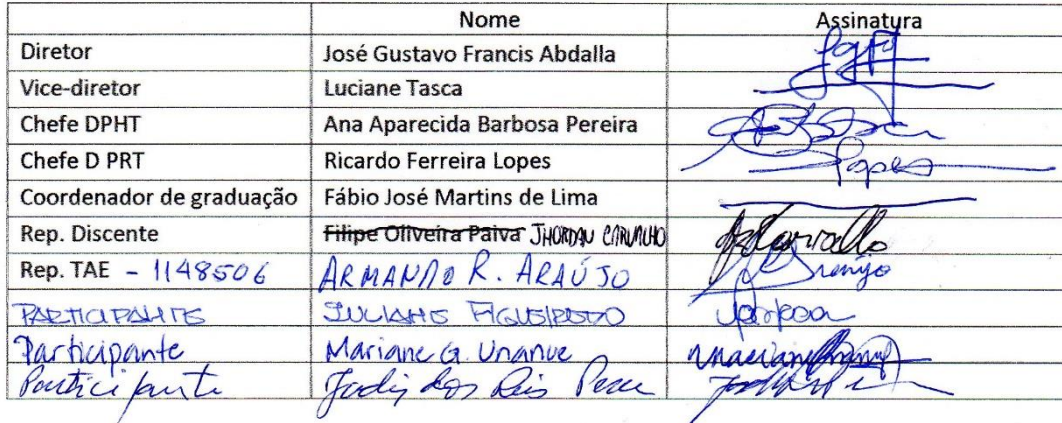 Nome Assinatura
Diretor José Gustavo Francis Abdalla
Vice-diretor Luciane Tasca
Chefe DPHT Ana Aparecida Barbosa Pereira
Chefe D PRT Ricardo Ferreira Lopes Lopes
Coordenador de graduação Fábio José Martins de Lima
Rep. Discente Filipe Oliveira Paiva JHORDAN CARVALHO Carvallo
Rep. TAE - 1148506 ARMANDO R. ARAÚJO Araújo
PARTICIPANTE JULIANE FIGUEIREDO
Participante Mariane G. Unanue
Participante dos Reis